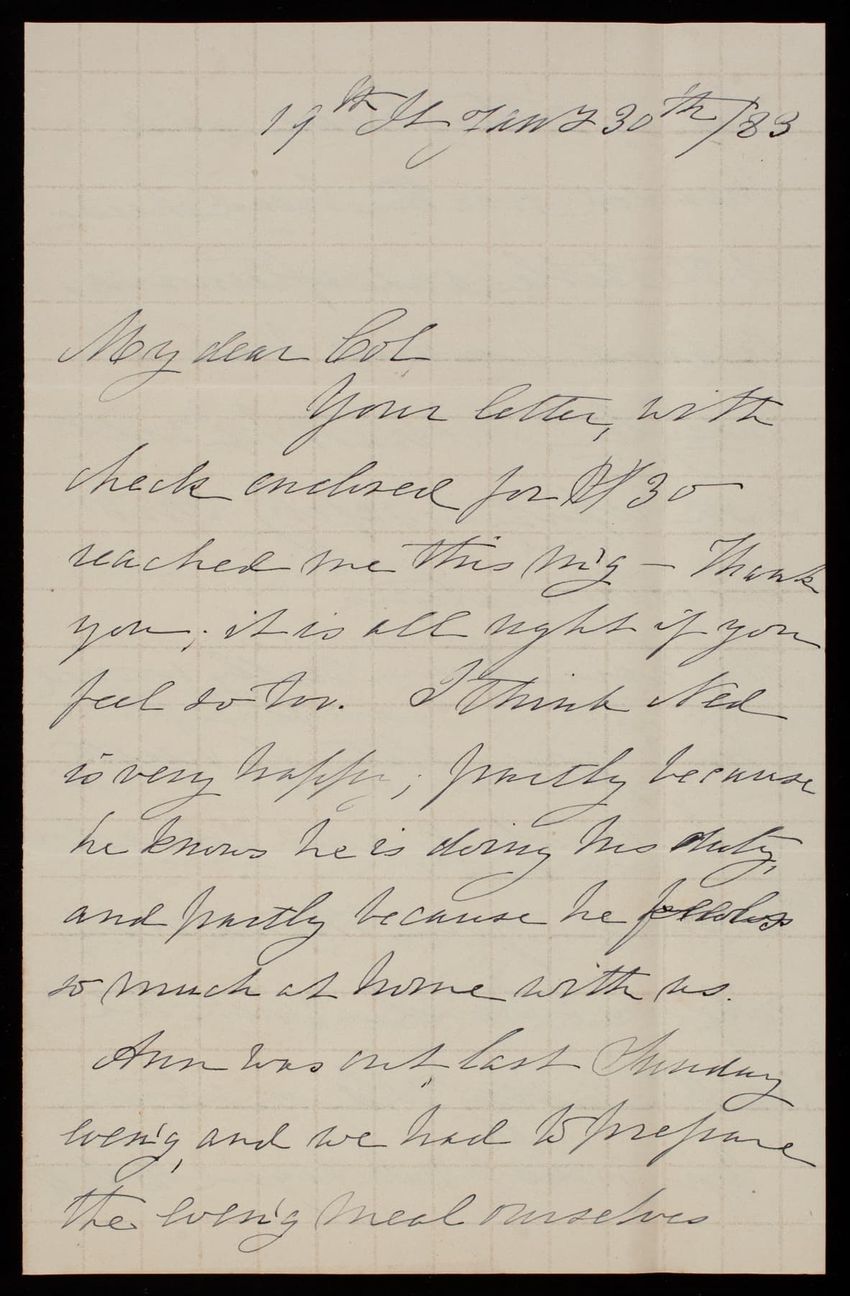 19th St Jany 30th/83
My dear Col
Your letter, with
check enclosed for $30
reached me this m'g – Thank
you; it is all right if you
feel so too. I think Ned
is very happy; partly because
he knows he is doing his duty,
and partly because he feels
so much at home with us.
Ann was out, last Sunday
even'g, and we had to prepare
the even'g meal ourselves